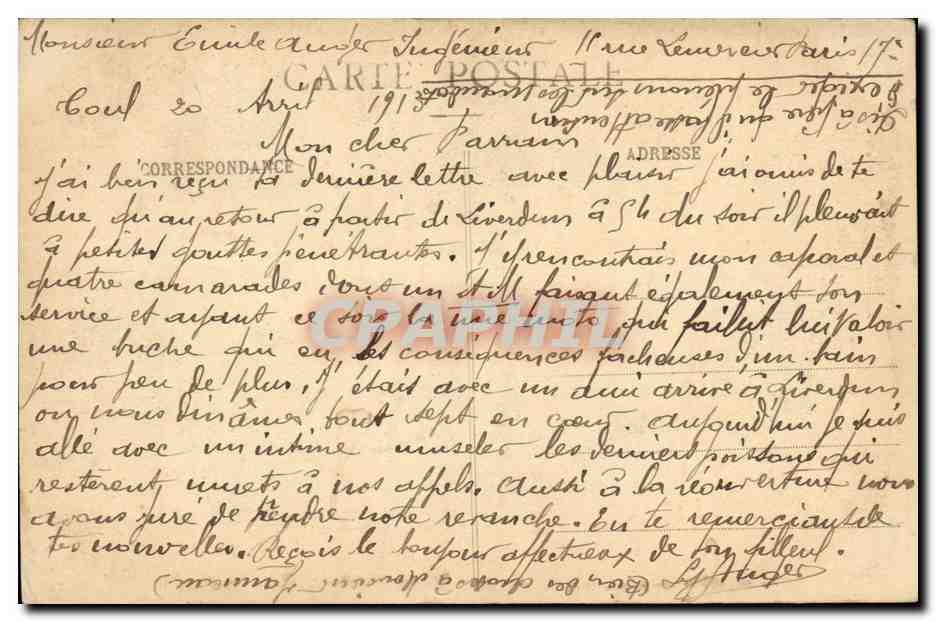 Monsieur Emile Auger Ingénieur 11 rue Lemercier Paris 17e
CARTE POSTALE
Toul 20 Avril 1913
Mon cher Parrain
CORRESPONDANCE
ADRESSE
J'ai bien reçu ta dernière lettre avec plaisir j'ai omis de te
dire qu'au retour à partir de Liverdun à 5h du soir il pleuvait
à petites gouttes pénétrantes. J'y rencontrais mon caporal et
quatre camarades dont un faisant également son
service et ayant ce soir là une moto qui faillit lui valoir
une buche qui eu les conséquences facheuses d'un bain
pour peu de plus. J'étais avec un ami arrivé à Liverdun
on nous dinâmes tout sept en coeur. Aujourd'hui je suis
allé avec un intime museler les derniers poissons qui
restèrent muets à nos appels. Aussi à la réouverture nous
avons juré de prendre notre revanche. En te remerciant de
tes nouvelles. Reçois le bonjour affectueux de ton filleul.
Auger
(Bien des choses à Monsieur
CPAPHIL